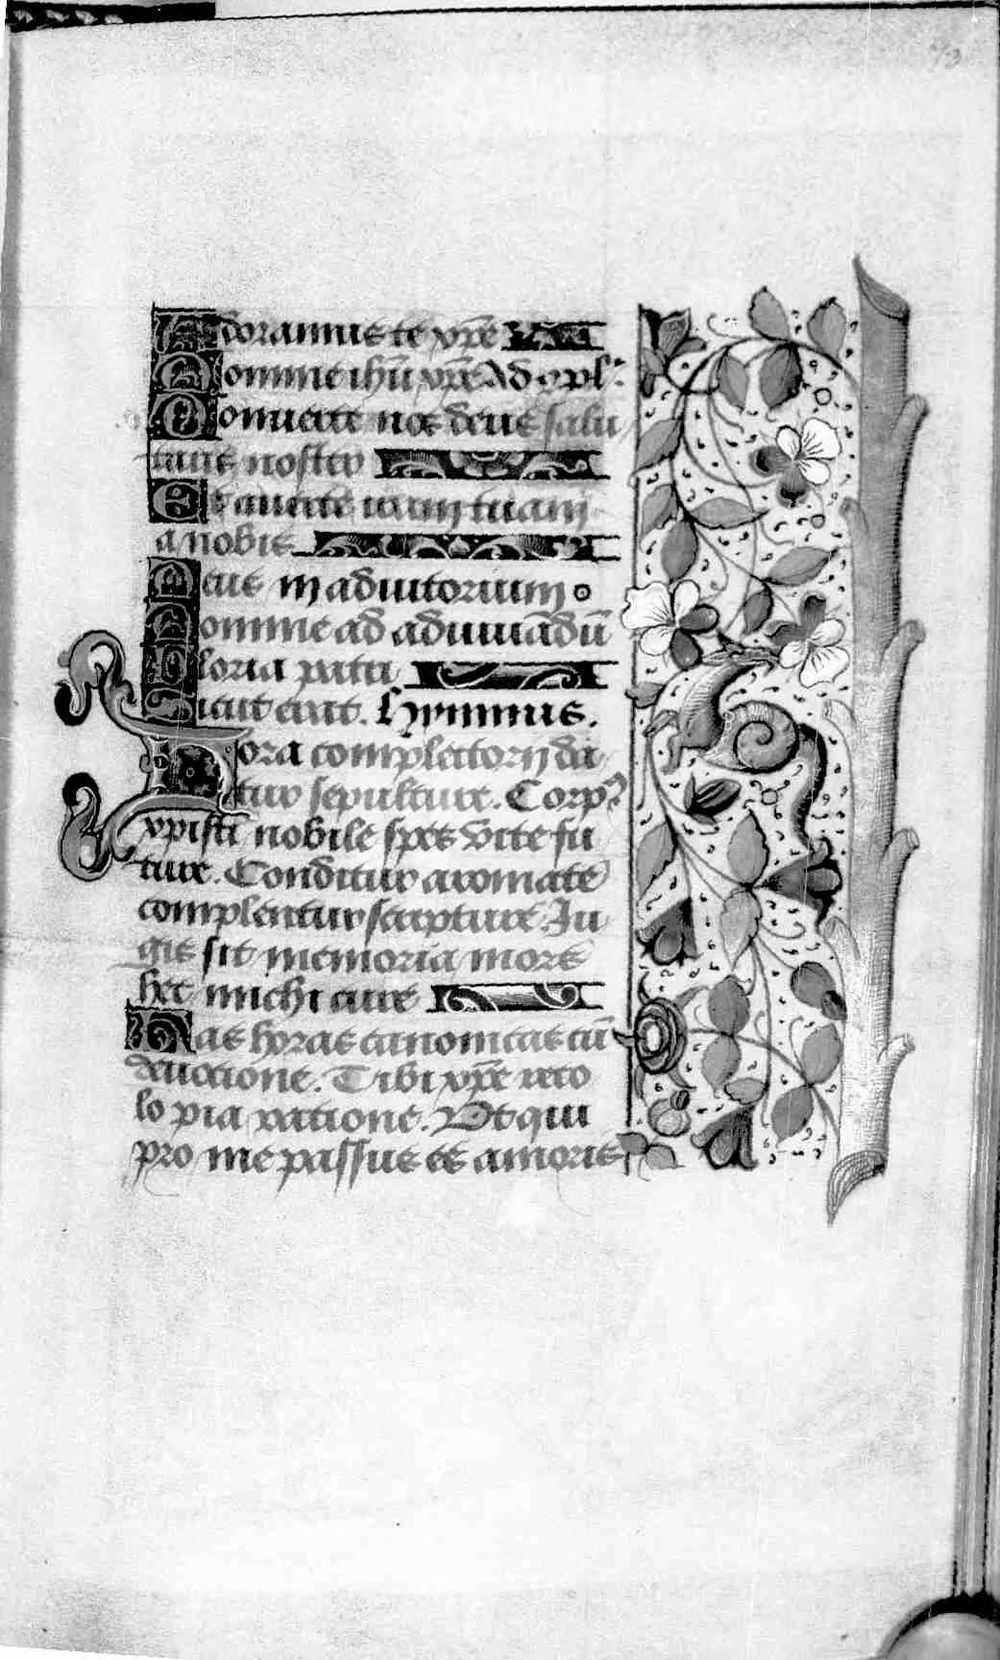 73
Adoramus te xp̄e
Domine ihū xp̄e Ad cpl'
Conuerte nos deus salu
taris noster
Et auerte iram tuam
a nobis
Deus in adiutorium
Domine ad adiuuādū
Gloria patri
Sicut erat. Hymnus.
Hora completorij da
tur sepulture. Corpꝰ
xpisti nobile spes vite fu
ture. Conditur aromate
complentur scripture. Iu
gis sit memoria mors
hec michi cure
Has horas canonicas cū
deuocione. Tibi xp̄e reco
lo pia racione. Vt qui
pro me passus es amoris